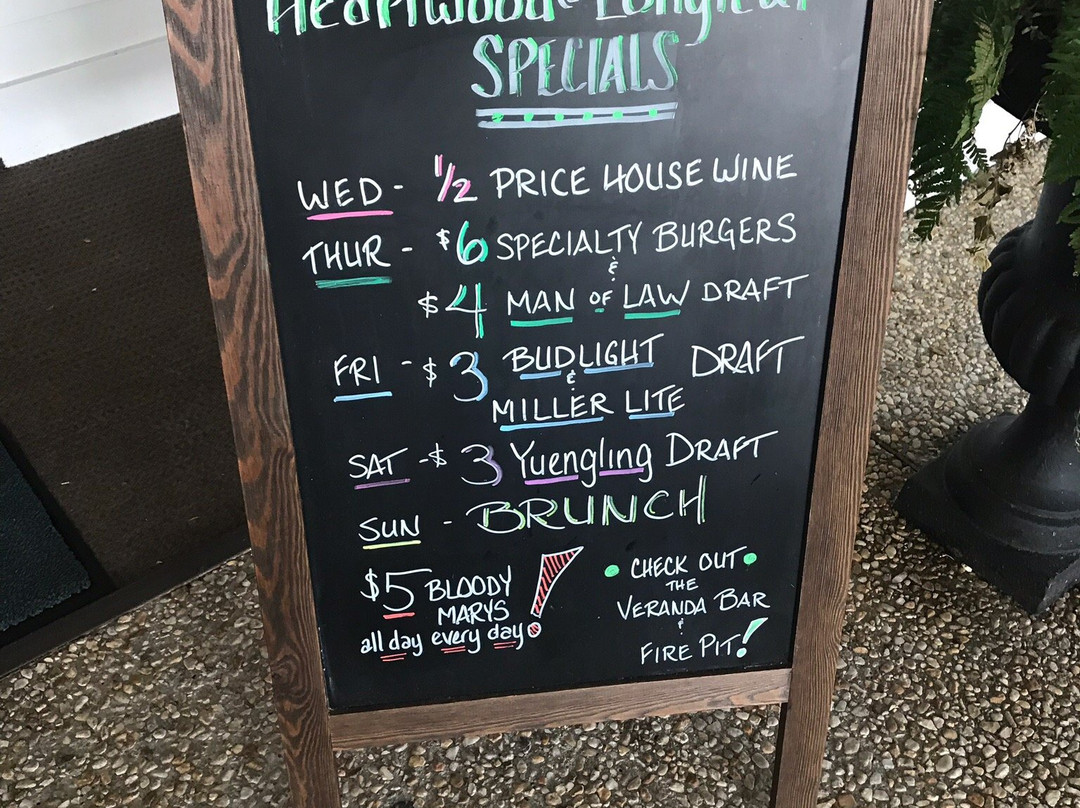 Heartwood
SPECIALS
WED - 1/2 PRICE HOUSE WINE
THUR - $6 SPECIALTY BURGERS
&
$4 MAN OF LAW DRAFT
FRI - $3 BUDLIGHT DRAFT
&
MILLER LITE
SAT - $3 Yuengling DRAFT
SUN - BRUNCH
$5 BLOODY
MARYS
all day every day!
• CHECK OUT •
THE
VERANDA BAR
&
FIRE PIT!